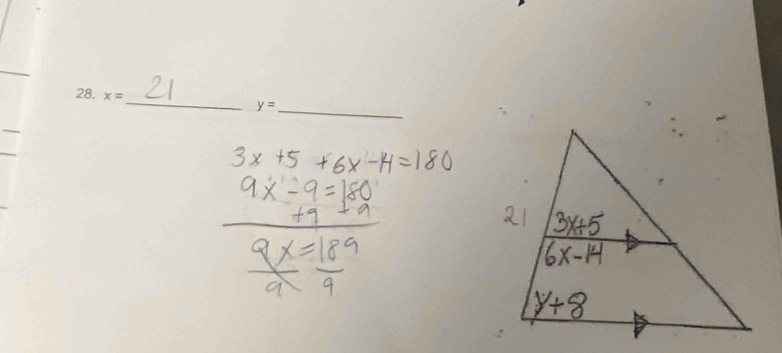 28. x = 21 y =
3x +5 +6x -14 = 180
9x -9 = 180
+9 +9
9x = 189
9 9
21
3x+5
6x-14
y+8